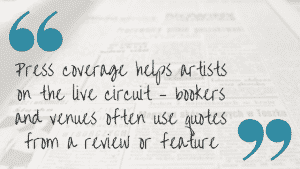 Press coverage helps artists
on the live circuit - bookers
and venues often use quotes
from a review or feature